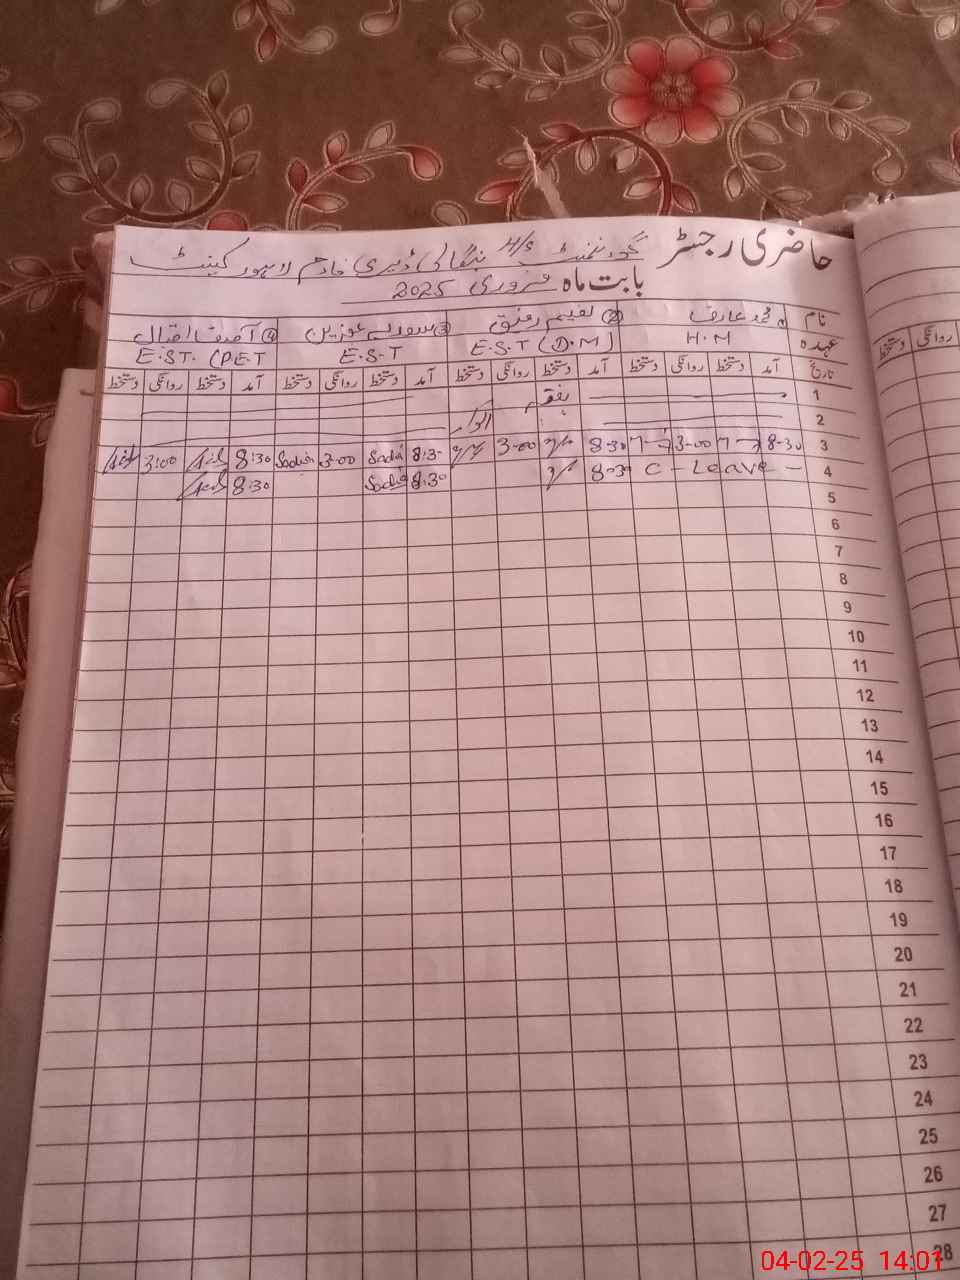 حاضری رجسٹر گورنمنٹ H/S بنگالی ڈیری فارم لاہور کینٹ
بابت ماہ فروری 2025
نام محمد عارف ② نعیم رفیق ③ سعدیہ عزیز ④ آصف اقبال
عہدہ H.M E.S.T (D.M) E.S.T E.S.T. (P.E.T
تاریخ آمد دستخط روانگی دستخط آمد دستخط روانگی دستخط آمد دستخط روانگی دستخط آمد دستخط روانگی دستخط
1 ہفتہ
2 اتوار
3 8-30 3-00 8-30 3-00 8:3- Sadia 3-00 Sadia 8:30 3:00
4 C - Leave - 8-30 Sadia 8:30 8:30
5
6
7
8
9
10
11
12
13
14
15
16
17
18
19
20
21
22
23
24
25
26
27
28
روانگی دستخط
04-02-25 14:01